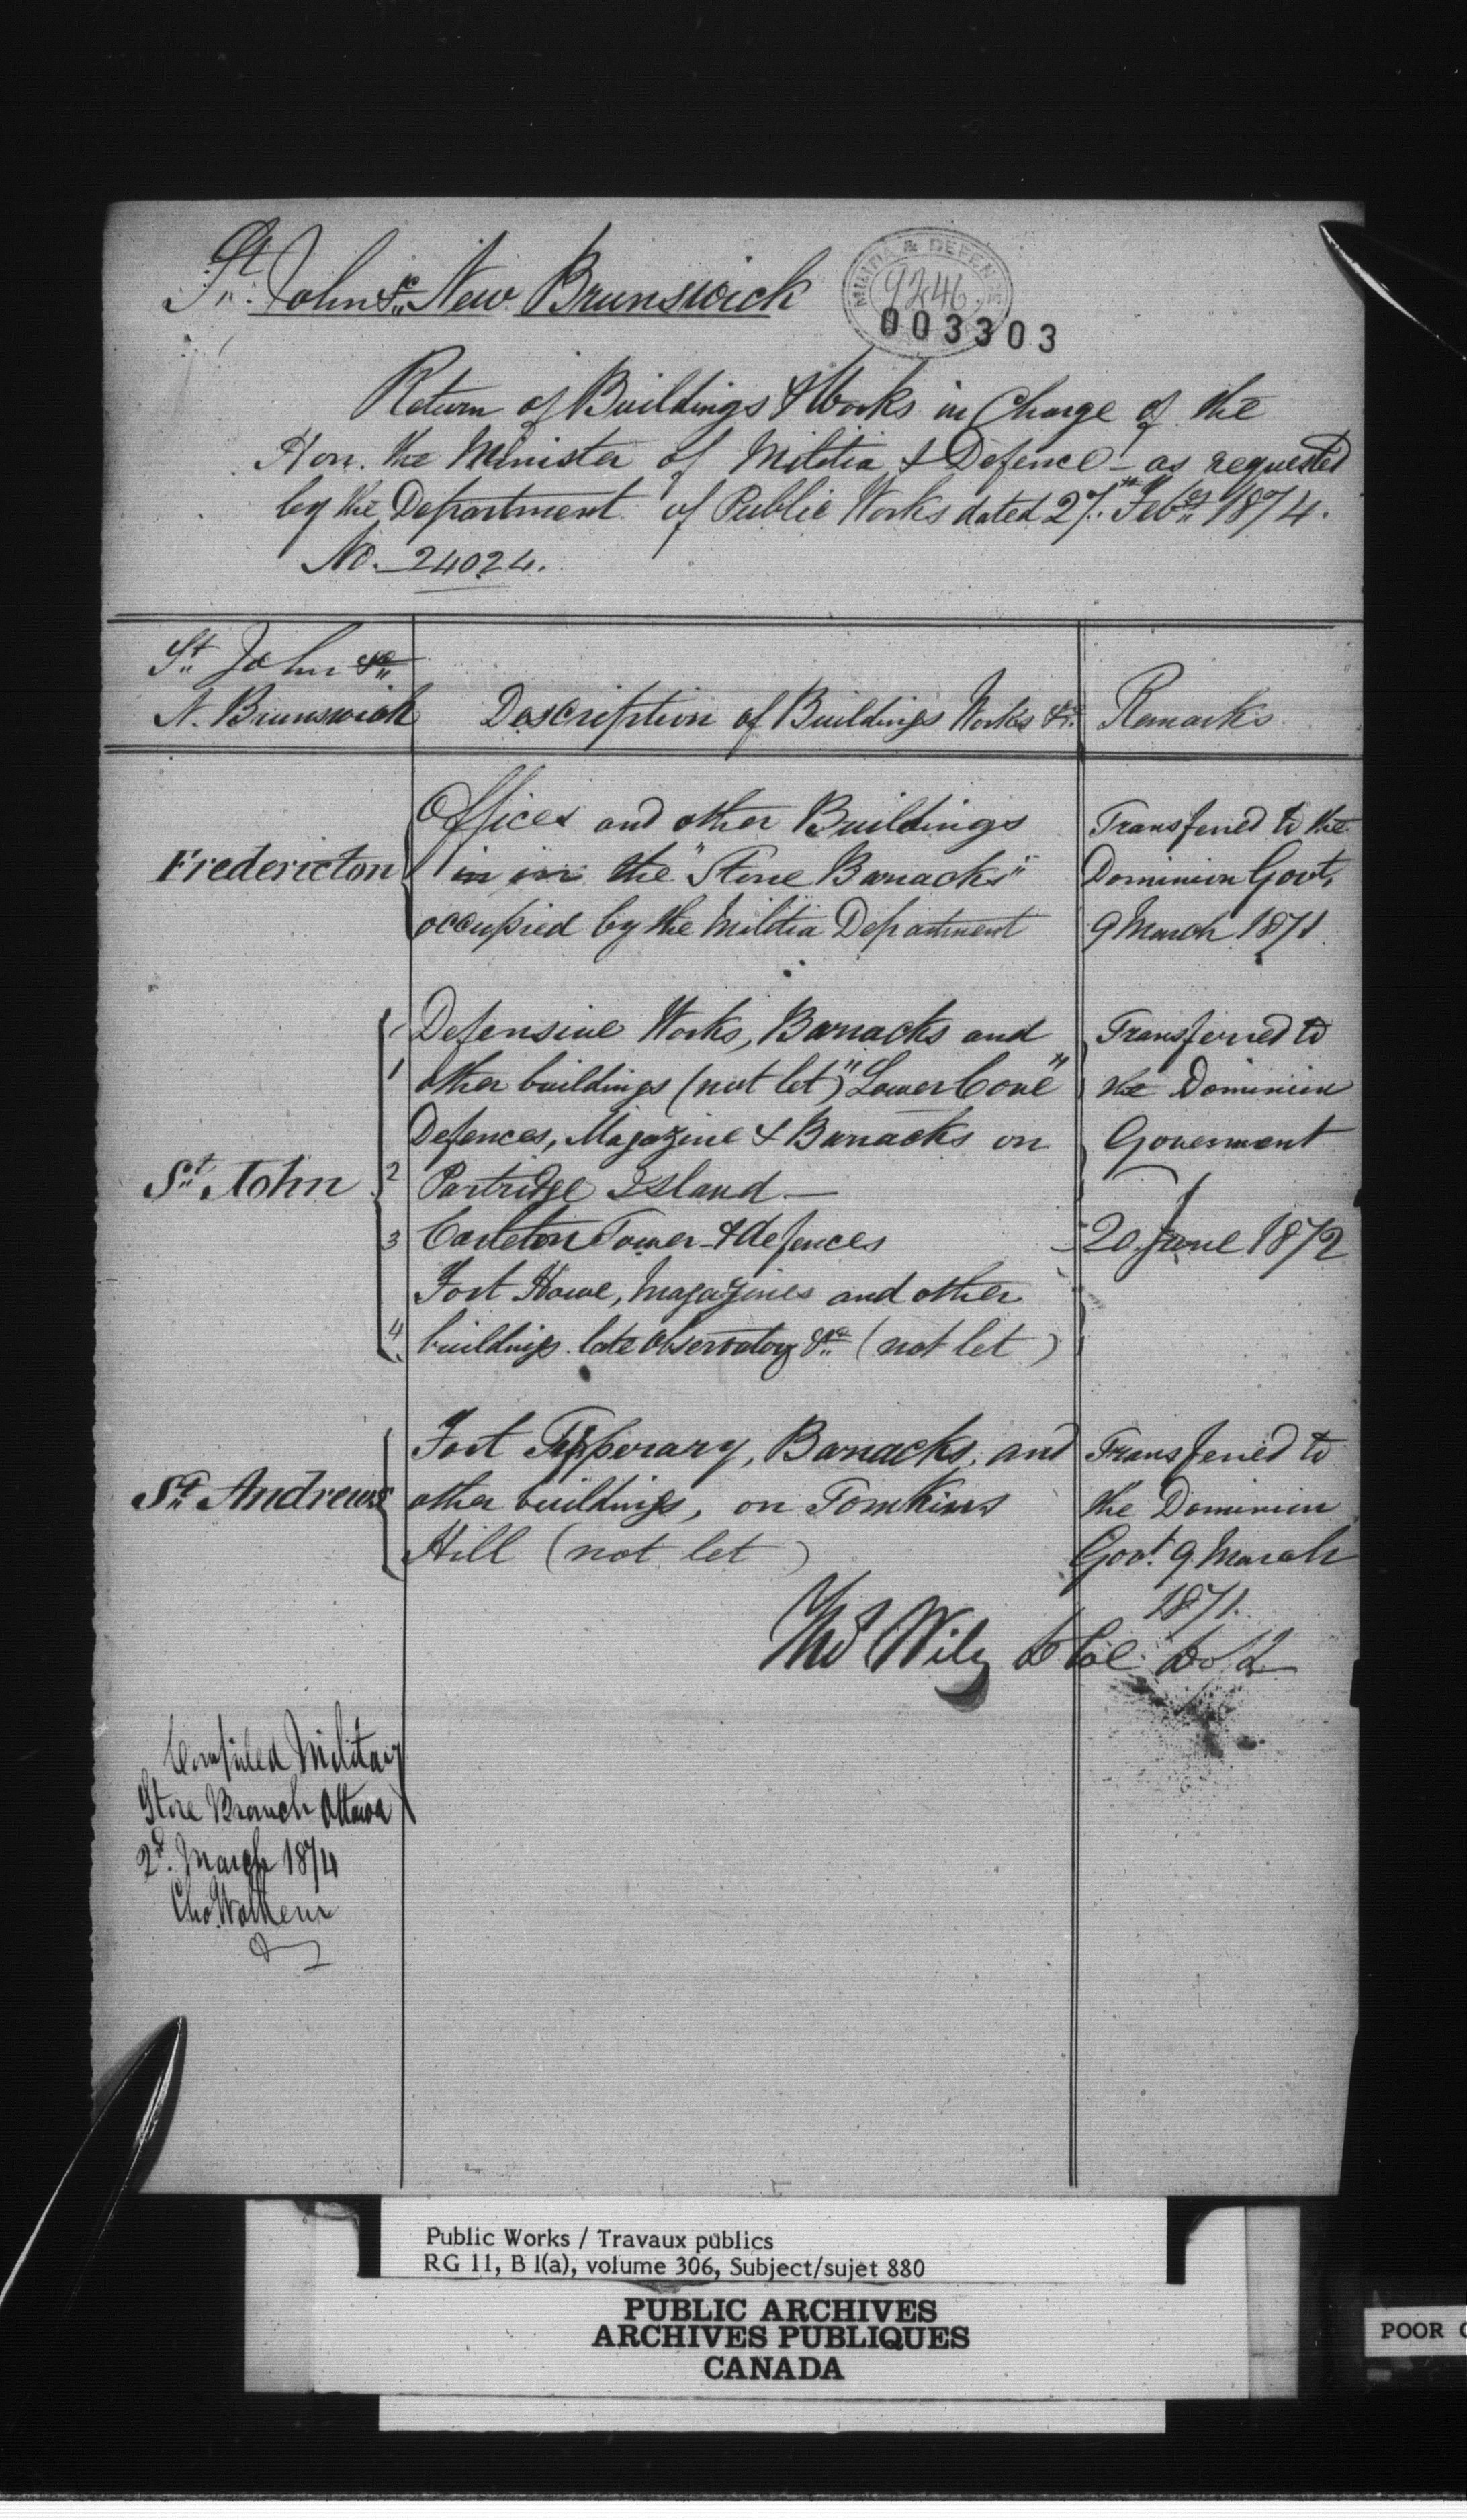 St. John &c. New Brunswick
MILITIA & DEFENCE
9246
003303
Return of Buildings & Works in Charge of the
Hon. the Minister of Militia & Defence – as requested
by the Department of Public Works dated 27th Feby 1874.
No. 24024.
St. John &c
N. Brunswick
Description of Buildings Works &c.
Remarks
Fredericton
Offices and other Buildings
in in the "Stone Barracks"
occupied by the Militia Department
Transferred to the
Dominion Govt,
9 March 1871
St. John
1 Defensive Works, Barracks and
other buildings (not let) "Lower Cove"
Defences, Magazine & Barracks on
2 Partridge Island —
3 Carleton Tower & defences
Fort Howe, Magazines and other
4 buildings late Observatory &c (not let)
Transferred to
the Dominion
Goverment
20 June 1872
St. Andrews
Fort Tipperary, Barracks, and
other buildings, on Tomkins
Hill (not let)
Transferred to
the Dominion
Govt. 9 March
1871.
Thos Wily Lt Col
Compiled Military
Store Branch Ottawa
2d. March 1874
Public Works / Travaux publics
RG 11, B 1(a), volume 306, Subject/sujet 880
PUBLIC ARCHIVES
ARCHIVES PUBLIQUES
CANADA
POOR